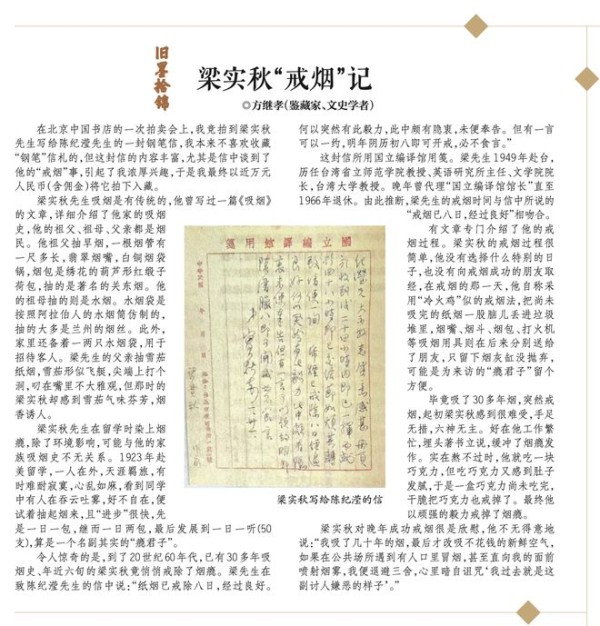 旧墨拾锦
梁实秋“戒烟”记
◎方继孝(鉴藏家、文史学者)
在北京中国书店的一次拍卖会上,我竞拍到梁实秋
先生写给陈纪滢先生的一封钢笔信,我本来不喜欢收藏
“钢笔”信札的,但这封信的内容丰富,尤其是信中谈到了
他的“戒烟”事,引起了我浓厚兴趣,于是我最终以近万元
人民币(含佣金)将它拍下入藏。
梁实秋先生吸烟是有传统的,他曾写过一篇《吸烟》
的文章,详细介绍了他家的吸烟
史,他的祖父、祖母、父亲都是烟
民。他祖父抽旱烟,一根烟管有
一尺多长,翡翠烟嘴,白铜烟袋
锅,烟包是绣花的葫芦形红缎子
荷包,抽的是著名的关东烟。他
的祖母抽的则是水烟。水烟袋是
按照阿拉伯人的水烟筒仿制的,
抽的大多是兰州的烟丝。此外,
家里还备着一两只水烟袋,用于
招待客人。梁先生的父亲抽雪茄
纸烟,雪茄形似飞艇,尖端上打个
洞,叼在嘴里不大雅观,但那时的
梁实秋却感到雪茄气味芬芳,烟
香诱人。
梁实秋先生在留学时染上烟
瘾,除了环境影响,可能与他的家
族吸烟史不无关系。1923年赴
美留学,一人在外,天涯羁旅,有
时难耐寂寞,心乱如麻,看到同学
中有人在吞云吐雾,好不自在,便
试着抽起烟来,且“进步”很快,先
是一日一包,继而一日两包,最后发展到一日一听(50
支),算是一个名副其实的“瘾君子”。
令人惊奇的是,到了20世纪60年代,已有30多年吸
烟史、年近六旬的梁实秋竟悄悄戒除了烟瘾。梁先生在
致陈纪滢先生的信中说:“纸烟已戒除八日,经过良好。
国立编译馆用笺
梁实秋写给陈纪滢的信
何以突然有此毅力,此中颇有隐衷,未便奉告。但有一言
可以一约,明年阴历初八即可开戒,必不食言。”
这封信所用国立编译馆用笺。梁先生1949年赴台,
历任台湾省立师范学院教授、英语研究所主任、文学院院
长,台湾大学教授。晚年曾代理“国立编译馆馆长”直至
1966年退休。由此推断,梁先生的戒烟时间与信中所说的
“戒烟已八日,经过良好”相吻合。
有文章专门介绍了他的戒
烟过程。梁实秋的戒烟过程很
简单,他没有选择什么特别的日
子,也没有向戒烟成功的朋友取
经,在戒烟的那一天,他自称采
用“冷火鸡”似的戒烟法,把尚未
吸完的纸烟一股脑儿丢进垃圾
堆里,烟嘴、烟斗、烟包、打火机
等吸烟用具则在后来分别送给
了朋友,只留下烟灰缸没抛弃,
可能是为来访的“瘾君子”留个
方便。
毕竟吸了30多年烟,突然戒
烟,起初梁实秋感到很难受,手足
无措,六神无主。好在他工作繁
忙,埋头著书立说,缓冲了烟瘾发
作。实在熬不过时,他就吃一块
巧克力,但吃巧克力又感到肚子
发腻,于是一盒巧克力尚未吃完,
干脆把巧克力也戒掉了。最终他
以顽强的毅力戒掉了烟瘾。
梁实秋对晚年成功戒烟很是欣慰,他不无得意地
说:“我吸了几十年的烟,最后才改吸不花钱的新鲜空气,
如果在公共场所遇到有人口里冒烟,甚至直向我的面前
喷射烟雾,我便退避三舍,心里暗自诅咒‘我过去就是这
副讨人嫌恶的样子’。”